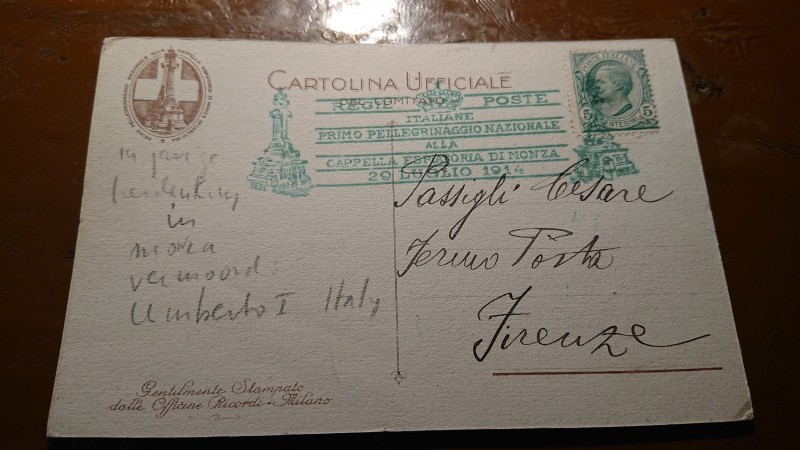 CARTOLINA UFFICIALE
DEL COMITATO
REGIE POSTE
ITALIANE
PRIMO PELLEGRINAGGIO NAZIONALE
ALLA
CAPPELLA ESPIATORIA DI MONZA
29 LUGLIO 1914
POSTE ITALIANE
5 5
CENTESIMI
in
monza
vermoord
Umberto I Italy
Passigli Cesare
Fermo Posta
Firenze
Gentilmente Stampato
dalle Officine Ricordi - Milano